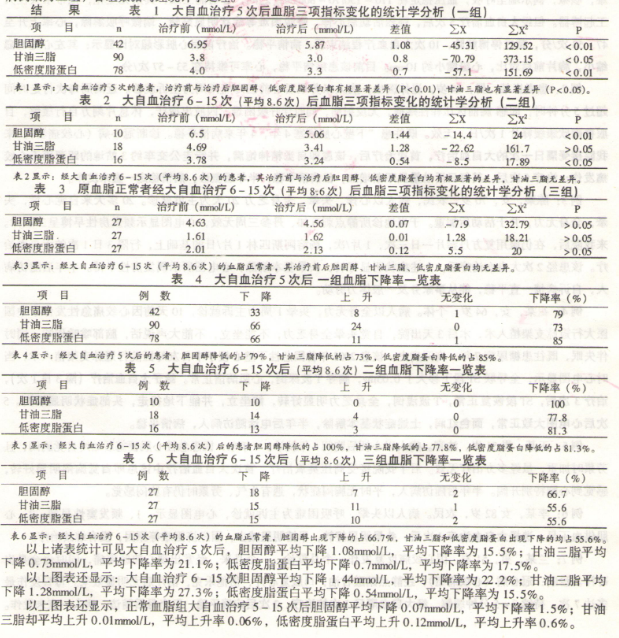 结 果
表 1 大自血治疗5次后血脂三项指标变化的统计学分析(一组)
项 目 n 治疗前(mmol/L) 治疗后(mmol/L) 差值 ∑X ∑X² P
胆固醇 42 6.95 5.87 1.08 -45.31 129.52 <0.01
甘油三脂 90 3.8 3.0 0.8 -70.79 373.15 <0.05
低密度脂蛋白 78 4.0 3.3 0.7 -57.1 151.69 <0.01
表1显示:经大自血治疗5次的患者,治疗前与治疗后胆固醇、低密度脂蛋白都有极显著差异(P<0.01),甘油三脂也有显著差异(P<0.05)。
表 2 大自血治疗6-15次(平均8.6次)后血脂三项指标变化的统计学分析(二组)
项 目 n 治疗前(mmol/L) 治疗后(mmol/L) 差值 ∑X ∑X² P
胆固醇 10 6.5 5.06 1.44 -14.4 24 <0.01
甘油三脂 18 4.69 3.41 1.28 -22.62 161.7 >0.05
低密度脂蛋白 16 3.78 3.24 0.54 -8.5 17.89 <0.05
表2显示:经大自血治疗6-15次(平均8.6次)的患者,其治疗前与治疗后胆固醇、低密度脂蛋白均有极显著的差异,甘油三脂无差异。
表 3 原血脂正常者经大自血治疗6-15次(平均8.6次)后血脂三项指标变化的统计学分析(三组)
项 目 n 治疗前(mmol/L) 治疗后(mmol/L) 差值 ∑X ∑X² P
胆固醇 27 4.63 4.56 0.07 -7.9 32.79 >0.05
甘油三脂 27 1.61 1.62 0.01 1.28 18.21 >0.05
低密度脂蛋白 27 2.01 2.13 0.12 5.5 20 >0.05
表3显示:经大自血治疗6-15次(平均8.6次)的血脂正常者,其治疗前后胆固醇、甘油三脂、低密度脂蛋白均无差异。
表 4 大自血治疗5次后一组血脂下降率一览表
项 目 例 数 下 降 上 升 无变化 下降率(%)
胆固醇 42 33 8 1 79
甘油三脂 90 66 24 0 73
低密度脂蛋白 78 66 11 1 85
表4显示:经大自血治疗5次后的患者,胆固醇降低的占79%,甘油三脂降低的占73%,低密度脂蛋白降低的占85%。
表 5 大自血治疗6-15次(平均8.6次)后二组血脂下降率一览表
项 目 例 数 下 降 上 升 无变化 下降率(%)
胆固醇 10 10 0 0 100
甘油三脂 18 14 4 0 77.8
低密度脂蛋白 16 13 3 0 81.3
表5显示:经大自血治疗6-15次(平均8.6次)后的患者胆固醇降低的占100%,甘油三脂降低的占77.8%,低密度蛋白降低的占81.3%。
表 6 大自血治疗6-15次(平均8.6次)三组血脂下降率一览表
项 目 例 数 下 降 上 升 无变化 下降率(%)
胆固醇 27 18 7 2 66.7
甘油三脂 27 15 11 1 55.6
低密度脂蛋白 27 15 10 2 55.6
表6显示:经大自血治疗6-15次(平均8.6次)的血脂正常者,胆固醇出现下降的占66.7%,甘油三脂和低密度脂蛋白出现下降的均占55.6%。
以上诸表统计可见大自血治疗5次后,胆固醇平均下降1.08mmol/L,平均下降率为15.5%;甘油三脂平均
下降0.73mmol/L,平均下降率为21.1%;低密度脂蛋白平均下降0.7mmol/L,平均下降率为17.5%。
以上图表还显示:大自血治疗6-15次胆固醇平均下降1.44mmol/L,平均下降率为22.2%;甘油三脂平均
下降1.28mmol/L,平均下降率为27.3%;低密度脂蛋白平均下降0.54mmol/L,平均下降率为15.5%。
以上图表还显示,正常血脂组大自血治疗5-15次后胆固醇平均下降0.07mmol/L,平均下降率1.5%;甘油
三脂却平均上升0.01mmol/L,平均上升率0.06%,低密度脂蛋白平均上升0.12mmol/L,平均上升率0.6%。